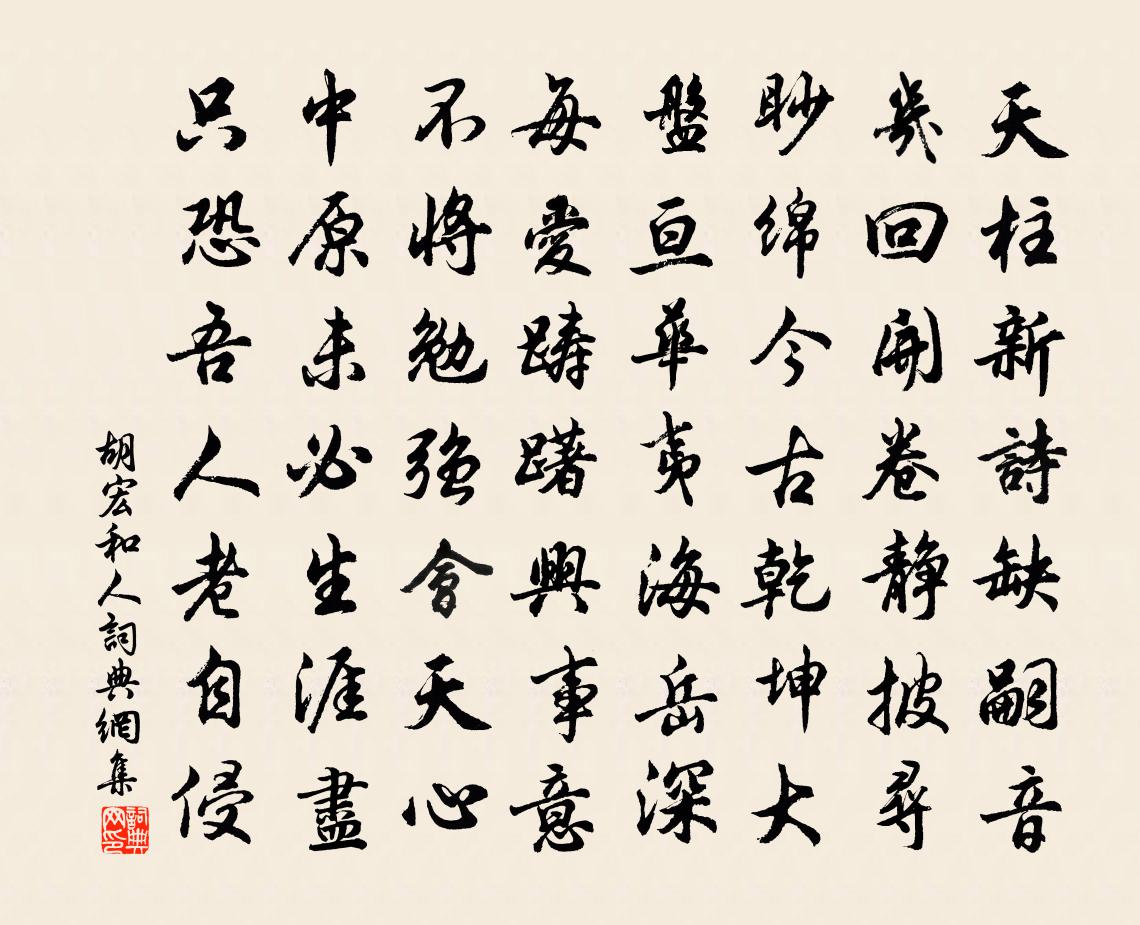 天柱新詩缺嗣音
幾回開卷静披尋
眇绵今古乾坤大
盤亘華夷海岳深
每愛踌躇興事意
不將勉強會天心
中原未必生涯盡
只恐吾人老自侵
胡宏和人詞典網集
詞典网印